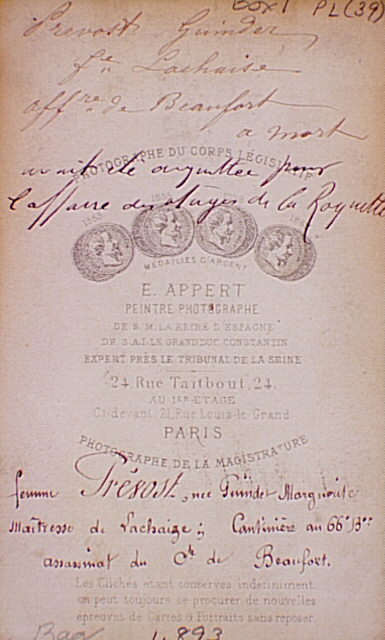 Box 1 PL(39)
Prevost Guinder
fe Lachaise
affre de Beaufort
a mort
avait été arguettée pour
l'affaire des otages de la Roquette
PHOTOGRAPHE DU CORPS LÉGISLATIF
1855
MÉDAILLES D'ARGENT
E. APPERT
PEINTRE PHOTOGRAPHE
DE S. M. LA REINE D'ESPAGNE
DE S.A.I. LE GRAND DUC CONSTANTIN
EXPERT PRÈS LE TRIBUNAL DE LA SEINE
24, Rue Taitbout, 24.
AU 1ER ETAGE
Ci-devant, 21, Rue Louis-le-Grand
PARIS
PHOTOGRAPHE DE LA MAGISTRATURE
femme Prévost, née Guinder Marguerite
Maîtresse de Lachaize; Cantinière au 66e Bon
assassinat du Cte de Beaufort.
Les Clichés étant conservés indéfiniment
on peut toujours se procurer de nouvelles
épreuves de Cartes & Portraits sans reposer.
1.893